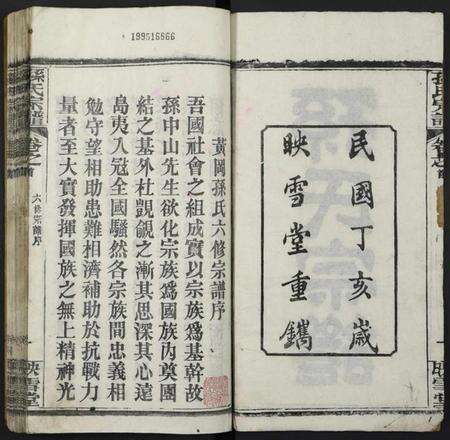 199516666
民國丁亥歲
映雪堂重鐫
黃岡孫氏六修宗譜序
吾國社會之組成實以宗族爲基幹故
孫中山先生欲化宗族爲國族內奠團
結之基外杜覬覦之漸其思深其心遠
島夷入寇全國騷然各宗族間忠義相
勉守望相助患難相濟補助於抗戰力
量者至大實發揮國族之無上精神光
孫氏宗譜
卷之首
六修宗譜序
一
映雪堂